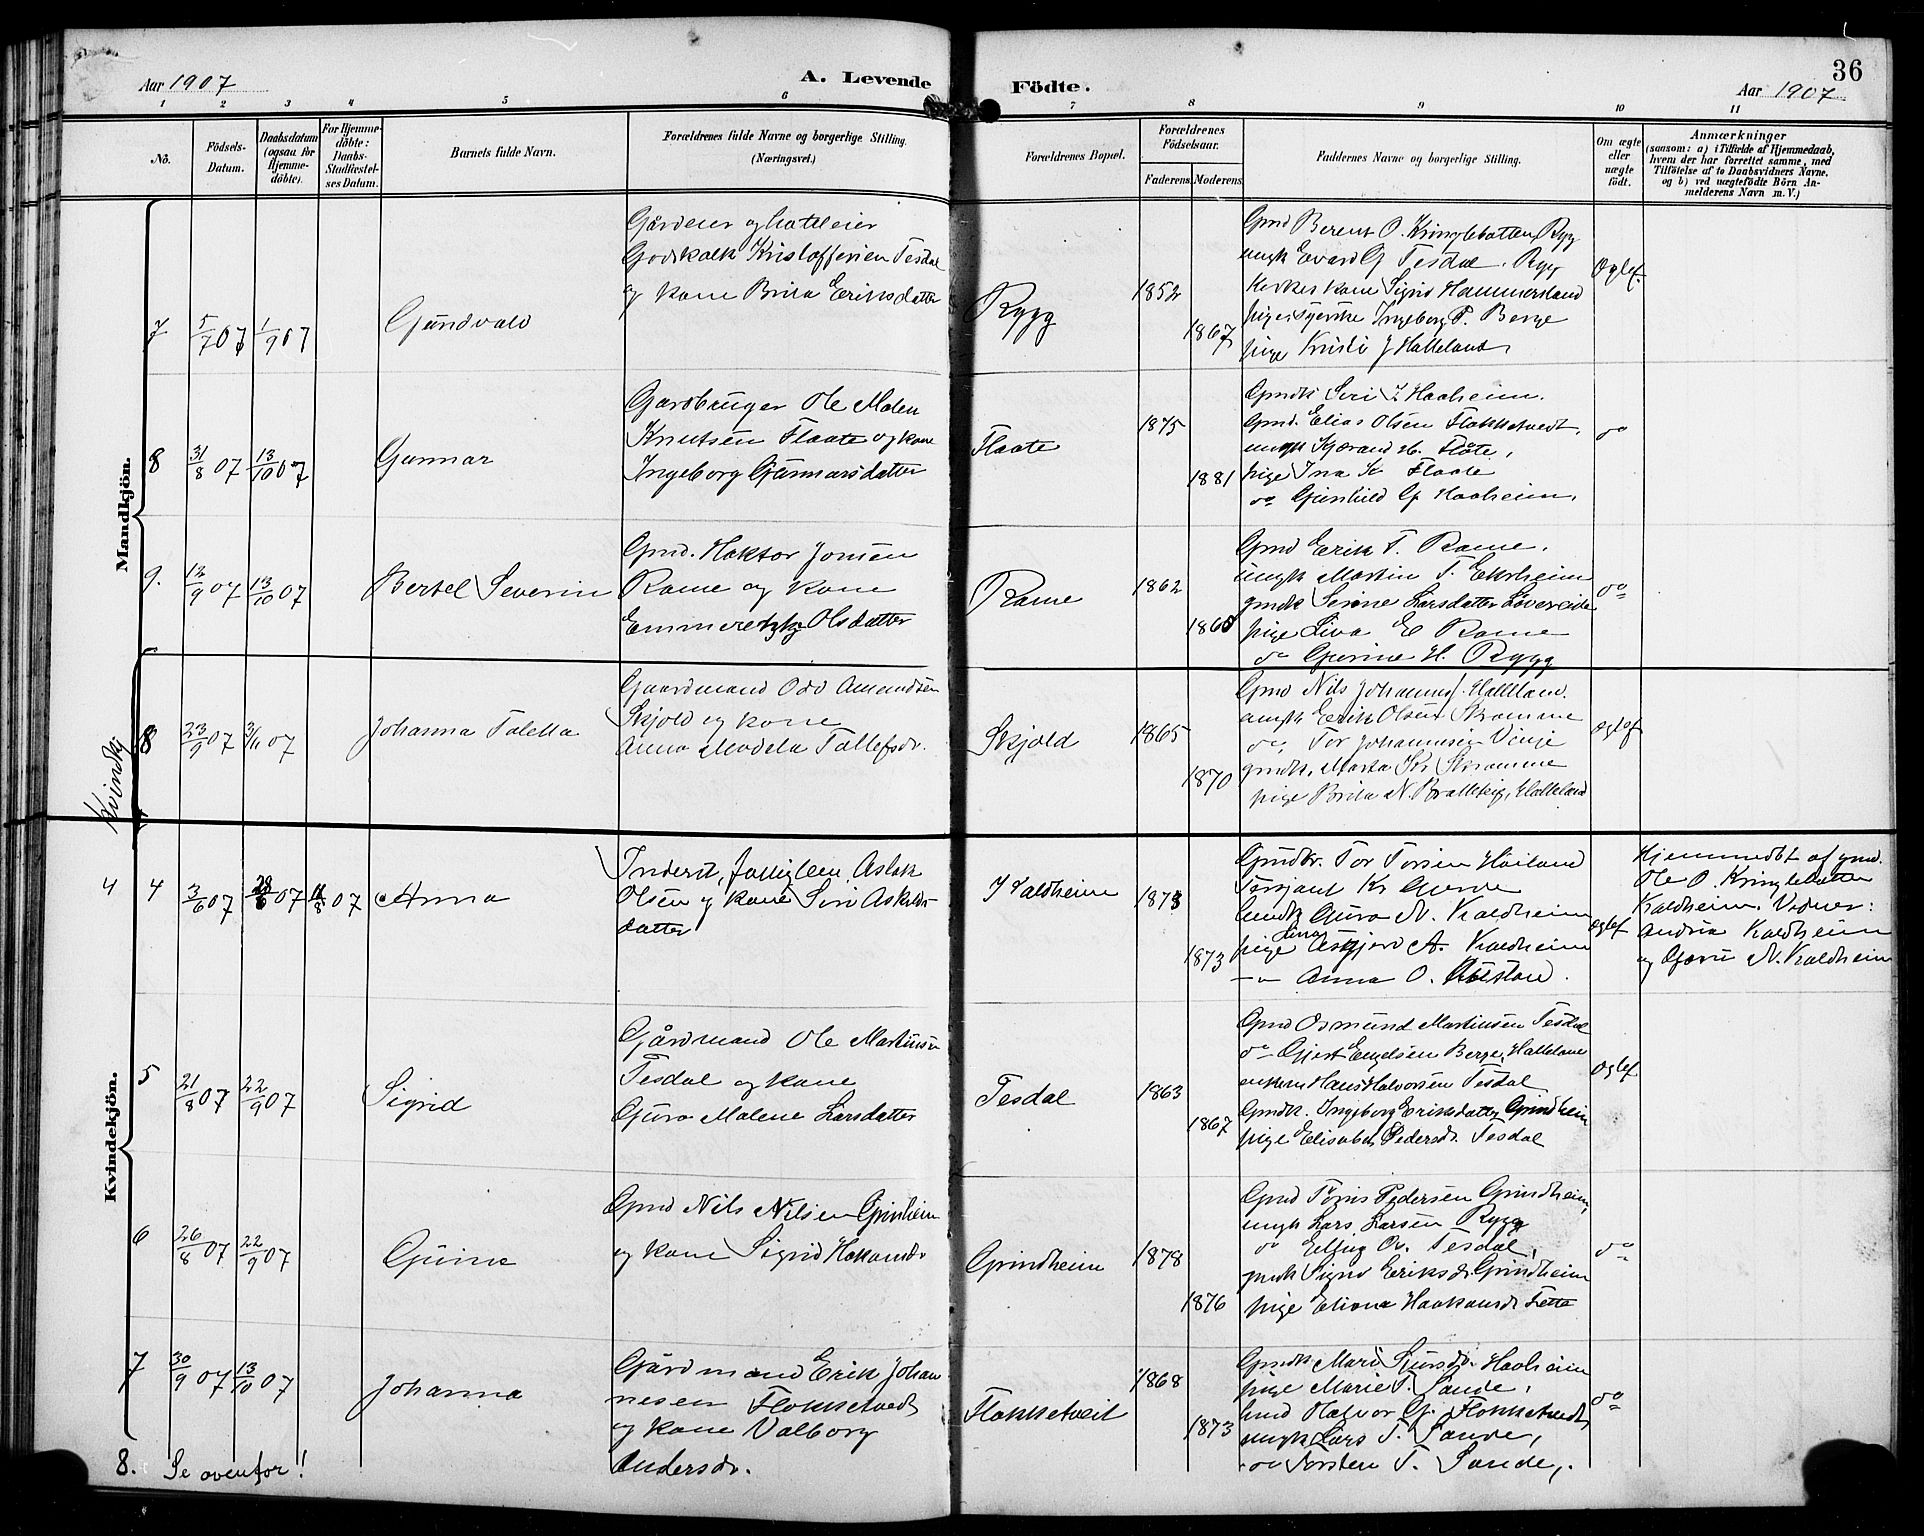 Aar 1907
A. Levende
Födte.
36
Aar 1907
1 2 3 4 5 6 7 8 9 10 11
No.
Födsels-
Datum.
Daabsdatum
(ogsaa for
Hjemme-
döbte).
For Hjemme-
döbte:
Daabs-
Stadfæstel-
ses Datum.
Barnets fulde Navn.
Forældrenes fulde Navne og borgerlige Stilling.
(Næringsvei.)
Forældrenes Bopæl.
Forældrenes
Födselsaar.
Faderens.
Moderens.
Faddernes Navne og borgerlige Stilling.
Om ægte
eller
uægte
födt.
Anmærkninger
(saasom: a) i Tilfælde af Hjemmedaab,
hvem der har forrettet samme, med
Tilföielse af to Daabsvidners Navne,
og b) ved uægtefödte Börn An-
melderens Navn m. V.)
Mandkjön.
7 5/7 07 1/9 07 Gundvald
Gårdeier og hotteleier
Godskalk Kristoffersen Tesdal
og kone Brita Eriksdatter
Rygg
1852
1867
Gmd Berent O. Kringlebotten, Rygg
ungk Evard G Tesdal, Rygg
Kirkes kone Sigrid Hammersland
pige syerske Ingeborg P. Berge
pige Kristi J Halleland.
Ægtef.
8 31/8 07 13/10 07 Gunnar
Gardbruger Ole Malen
Knutsen Flaate og kone
Ingeborg Gunnarsdatter
Flaate
1875
1881
Gmdk Siri I. Haaheim.
Gmd. Elias Olsen Flokketvedt,
ungk Sjovand M. Flåte,
pige Ina K. Flaate
do Gunhild G. Haaheim.
do
9. 12/9 07 13/10 07 Bertel Severin
Gmd. Haktor Jonsen
Rame og kone
Emmeretzke Olsdatter
Rame
1862
1865
Gmd Erik T. Rame.
ungk Martin T. Ekrheim
gmdk Serine Larsdatter Løvereide
pige Liva E Rame
do Gurine H. Rygg
do
Kvindkj
8 23/9 07 3/11 07 Johanna Taletta
Gaardmand Odd Amundsen
Skjold og kone
Anna Madela Tollefsdr.
Skjold
1865
1870
Gmd Nils Johannes. Halleland.
ungk Erik Olsen Skromme
do, Tor Johannesen Vinje
gmdk. Marta Kr Skromme
pige Brita N. Brattebg, Halleland
Ægtef
Kvindekjön.
4 4 3/6 07 28/6 07 11/8 07 Anna
Inderst, fattiglem Aslak
Olsen og kone Siri Aslaks-
datter
I Kaldheim
1873
1873
Gmdbr. Tor Torsen Hailand
Torsjant Kr Gjerde
Gmdk Guro N. Kaldheim
pige Lina Asbjørn A. Kaldheim
— Anna O. Austad.
Ægtef
Hjemmedbt af gmd.
Ole O. Kringlebotten
Kaldheim. Vidner:
Andria Kaldheim
og Gjøri N. Kaldheim
5 21/8 07 22/9 07 Sigrid
Gårdmand Ole Martinsen
Tesdal og kone
Guro Malene Larsdatter
Tesdal
1863
1867
Gmd Osmund Martinsen Tesdal
do Gjert Engelsen Berge, Halleland
enkem Hans Halvorsen Tesdal
Gmdk. Ingeborg Eriksdatter Grindheim
pige Elisabet Pedersdr. Tesdal
Ægtef
6 26/8 07 22/9 07 Gurine
Gmd Nils Nilsen Grinheim
og kone Sigrid Hakonsdr
Grindheim
1878
1876
Gmd Tønis Pedersen Grindheim,
ungk Lars Larsen Rygg
do Elling Ov. Tesdal,
gmdk Signe Eriksdr. Grindheim
pige Eliana Haakonsdr Tette
do
7 30/9 07 13/10 07 Johanna
Gårdmand Erik Johan
nesen Flokketvedt
og kone Valborg
Andersdr.
Flokketveit
1868
1873
Gmdk Mari Sjursdr. Haaheim
pige Marie T. Sande,
Gmd Halvor G. Flokketvedt,
ungk Lars T. Sande,
do Torsten T. Sande,.
do
8. Se ovenfor!